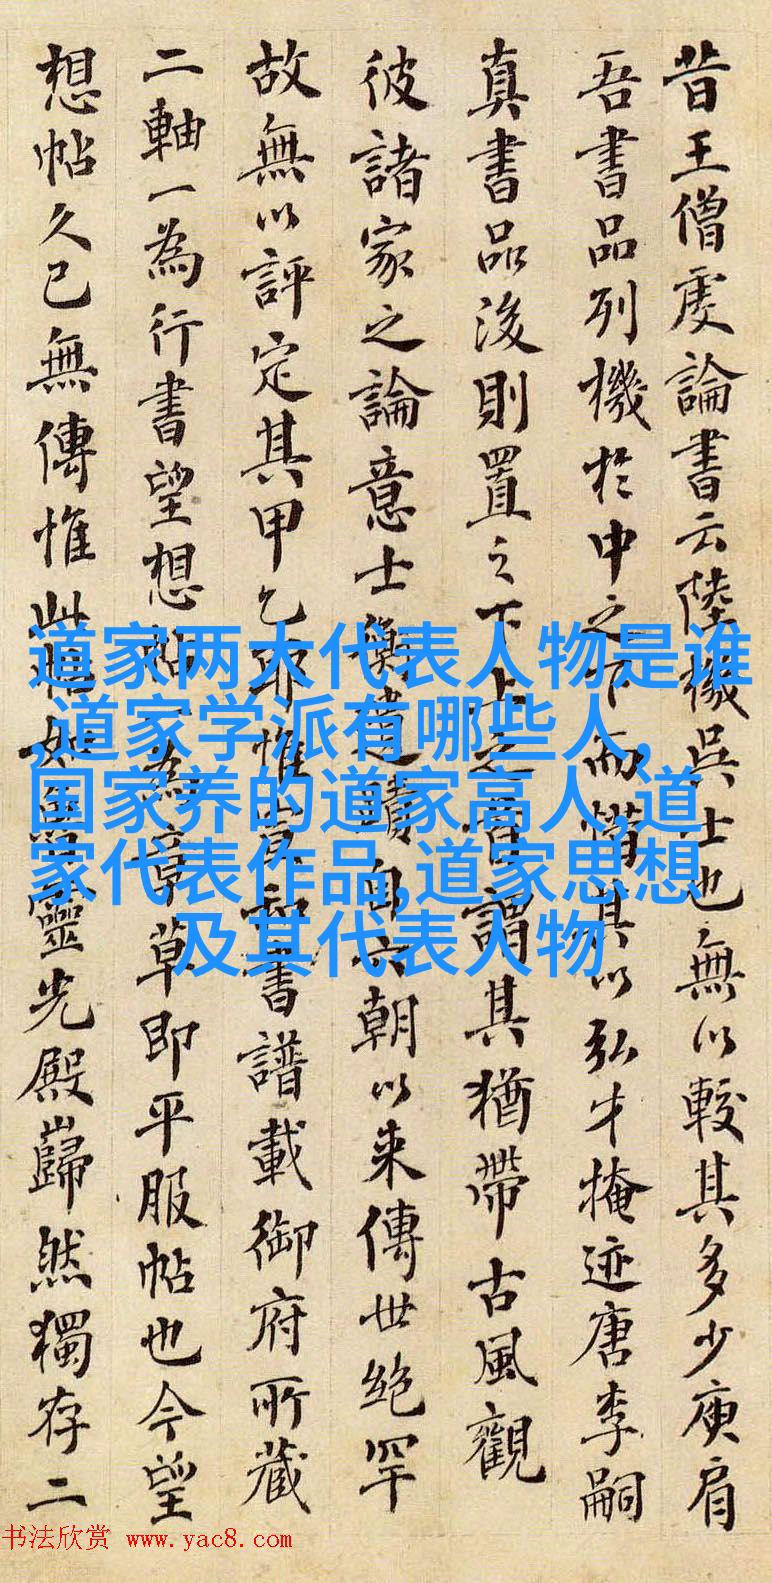 昔王僧虔論書云陸機吳士也無以較其多少庾肩
吾書品列機於中之下而惜其以弘才掩迹唐李嗣
真書品後則置之下上之首謂其猶帶古風觀
彼諸家之論意士衡遺蹟自六朝以来傳世絶罕
故無以評定其甲乙耶惟宣和書譜載御府所藏
二軸一為行書望想帖一為章草即平服帖也今望
想帖久已無傳惟此帖如魯靈光殿巋然獨存二
道家两大代表人物是谁
,道家学派有哪些人,
国家养的道家高人,道
家代表作品,道家思想
及其代表人物
书法欣赏 www.yac8.com